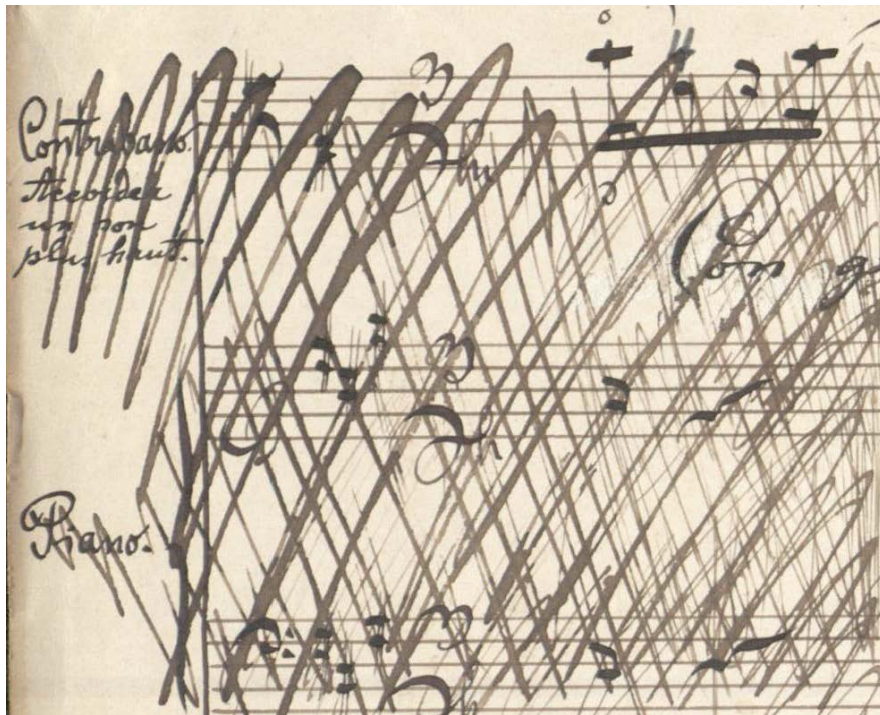 Contrabass.
Accorder
un ton
plus haut.
Con g
Piano.